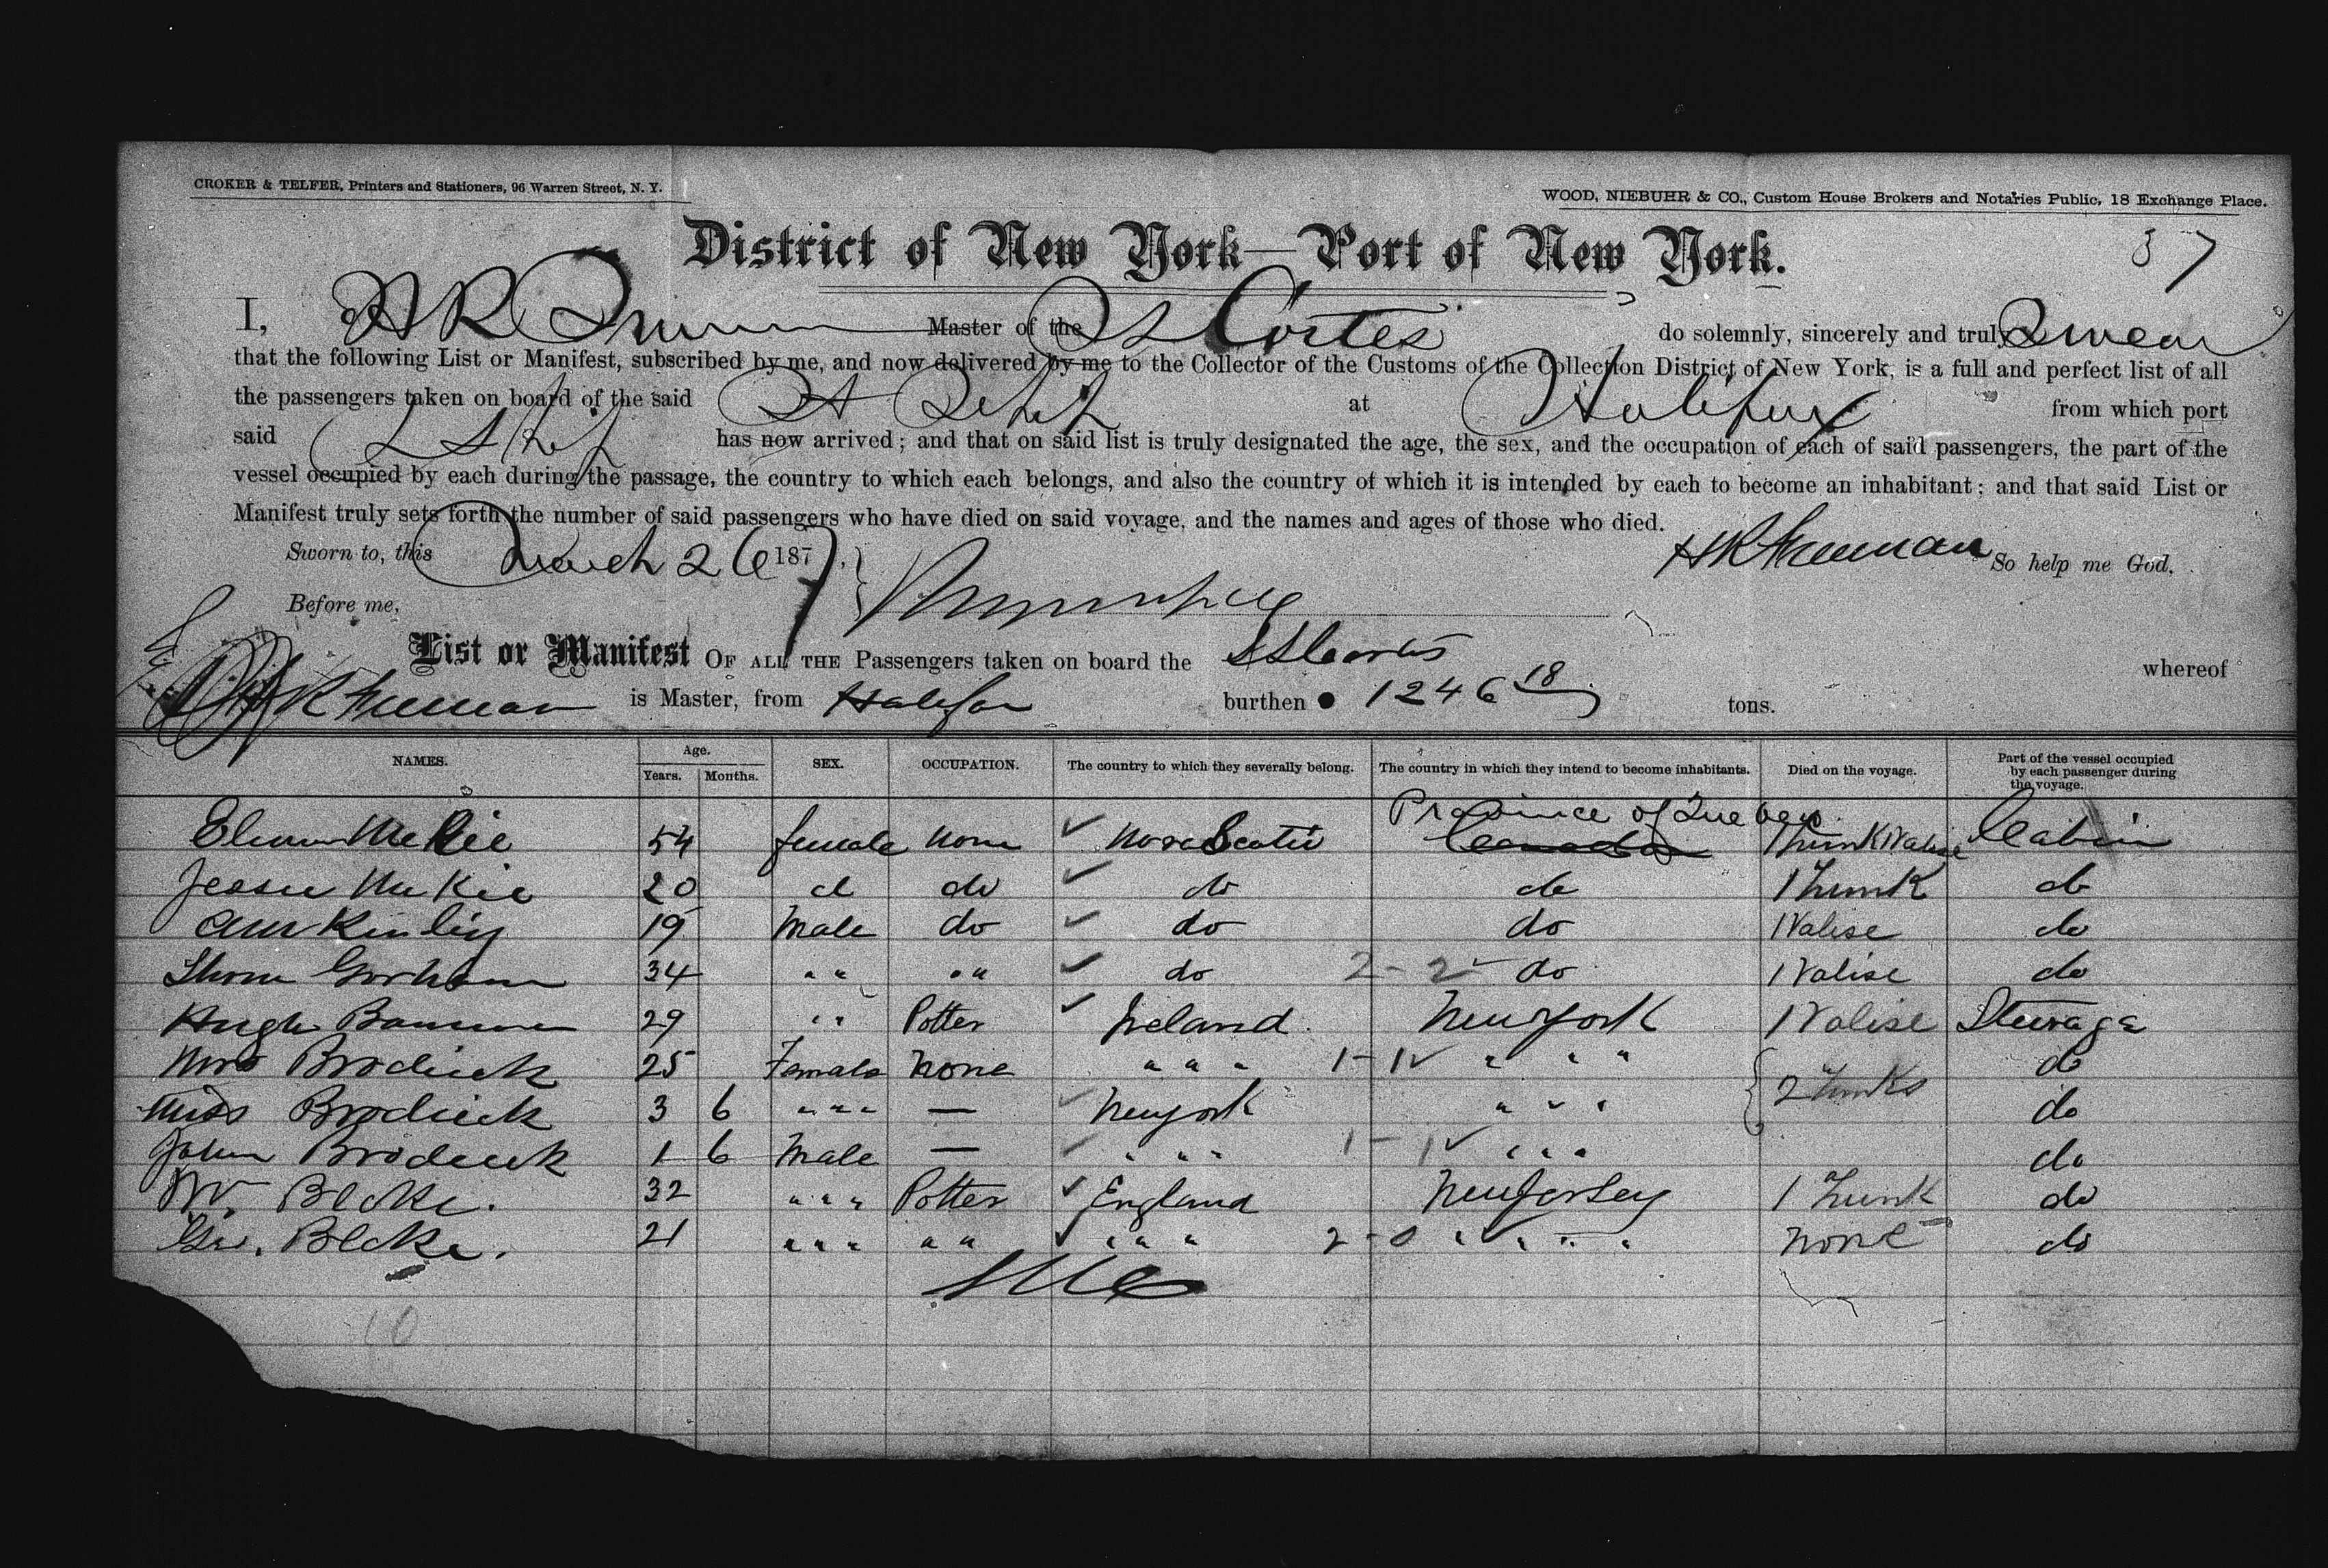 CROKER & TELFER, Printers and Stationers, 96 Warren Street, N. Y.
WOOD, NIEBUHR & CO., Custom House Brokers and Notaries Public, 18 Exchange Place.
District of New York—Port of New York.
87
I, HR Master of the SS Cortes do solemnly, sincerely and truly Swear
that the following List or Manifest, subscribed by me, and now delivered by me to the Collector of the Customs of the Collection District of New York, is a full and perfect list of all
the passengers taken on board of the said St Ship at Halifax from which port
said S Ship has now arrived; and that on said list is truly designated the age, the sex, and the occupation of each of said passengers, the part of the
vessel occupied by each during the passage, the country to which each belongs, and also the country of which it is intended by each to become an inhabitant; and that said List or
Manifest truly sets forth the number of said passengers who have died on said voyage, and the names and ages of those who died.
Sworn to, this March 26 1877. HR Freeman So help me God.
Before me,
List or Manifest OF ALL THE Passengers taken on board the SS Cortes whereof
HR Freeman is Master, from Halifax burthen 1246 18 tons.
NAMES. Age. Years. Months. SEX. OCCUPATION. The country to which they severally belong. The country in which they intend to become inhabitants. Died on the voyage. Part of the vessel occupied by each passenger during the voyage.
Province of Quebec
McKie 54 female none Nova Scotia Canada 1 Trunk 1 Valise Cabin
Jessie McKie 20 d do do do 1 Trunk do
Kinley 19 Male do do do 1 Valise do
Thom Gorham 34 " " " " do 2 - 2 do 1 Valise do
Hugh 29 " " Potter Ireland New York 1 Valise Steerage
Mrs Brodrick 25 Female None " " " 1 - 1 " " " do
Miss Brodrick 3 6 " " " — New York " " " 2 Trunks do
John Brodrick 1 6 Male — " " " 1 - 1 " " " do
W. Blake. 32 " " " Potter England New Jersey 1 Trunk do
Geo. Blake. 21 " " " " " " " " 2 - 0 " " " " None do
10